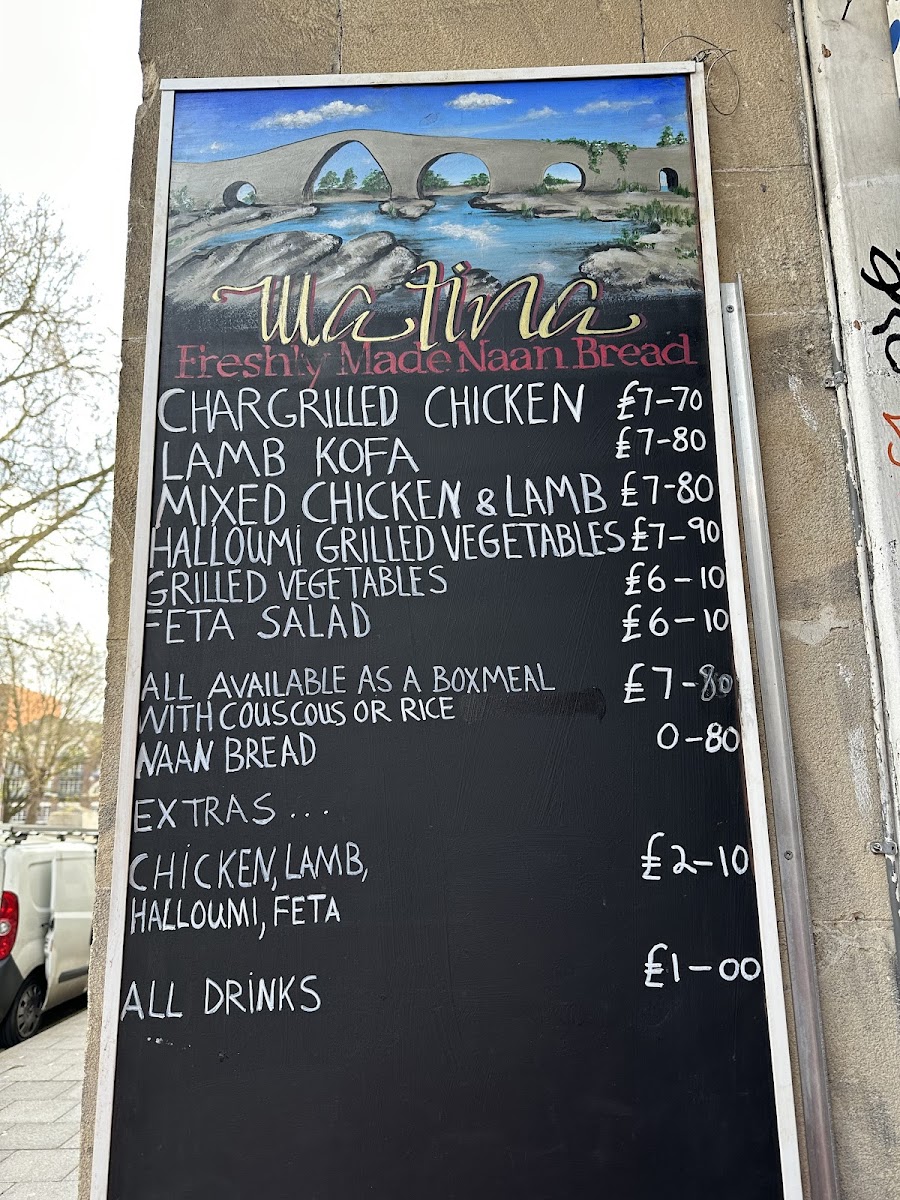 Matina
Freshly Made Naan Bread
CHARGRILLED CHICKEN £7-70
LAMB KOFA £7-80
MIXED CHICKEN & LAMB £7-80
HALLOUMI GRILLED VEGETABLES £7-90
GRILLED VEGETABLES £6-10
FETA SALAD £6-10
ALL AVAILABLE AS A BOXMEAL £7-80
WITH COUSCOUS OR RICE
NAAN BREAD 0-80
EXTRAS...
CHICKEN, LAMB, £2-10
HALLOUMI, FETA
ALL DRINKS £1-00